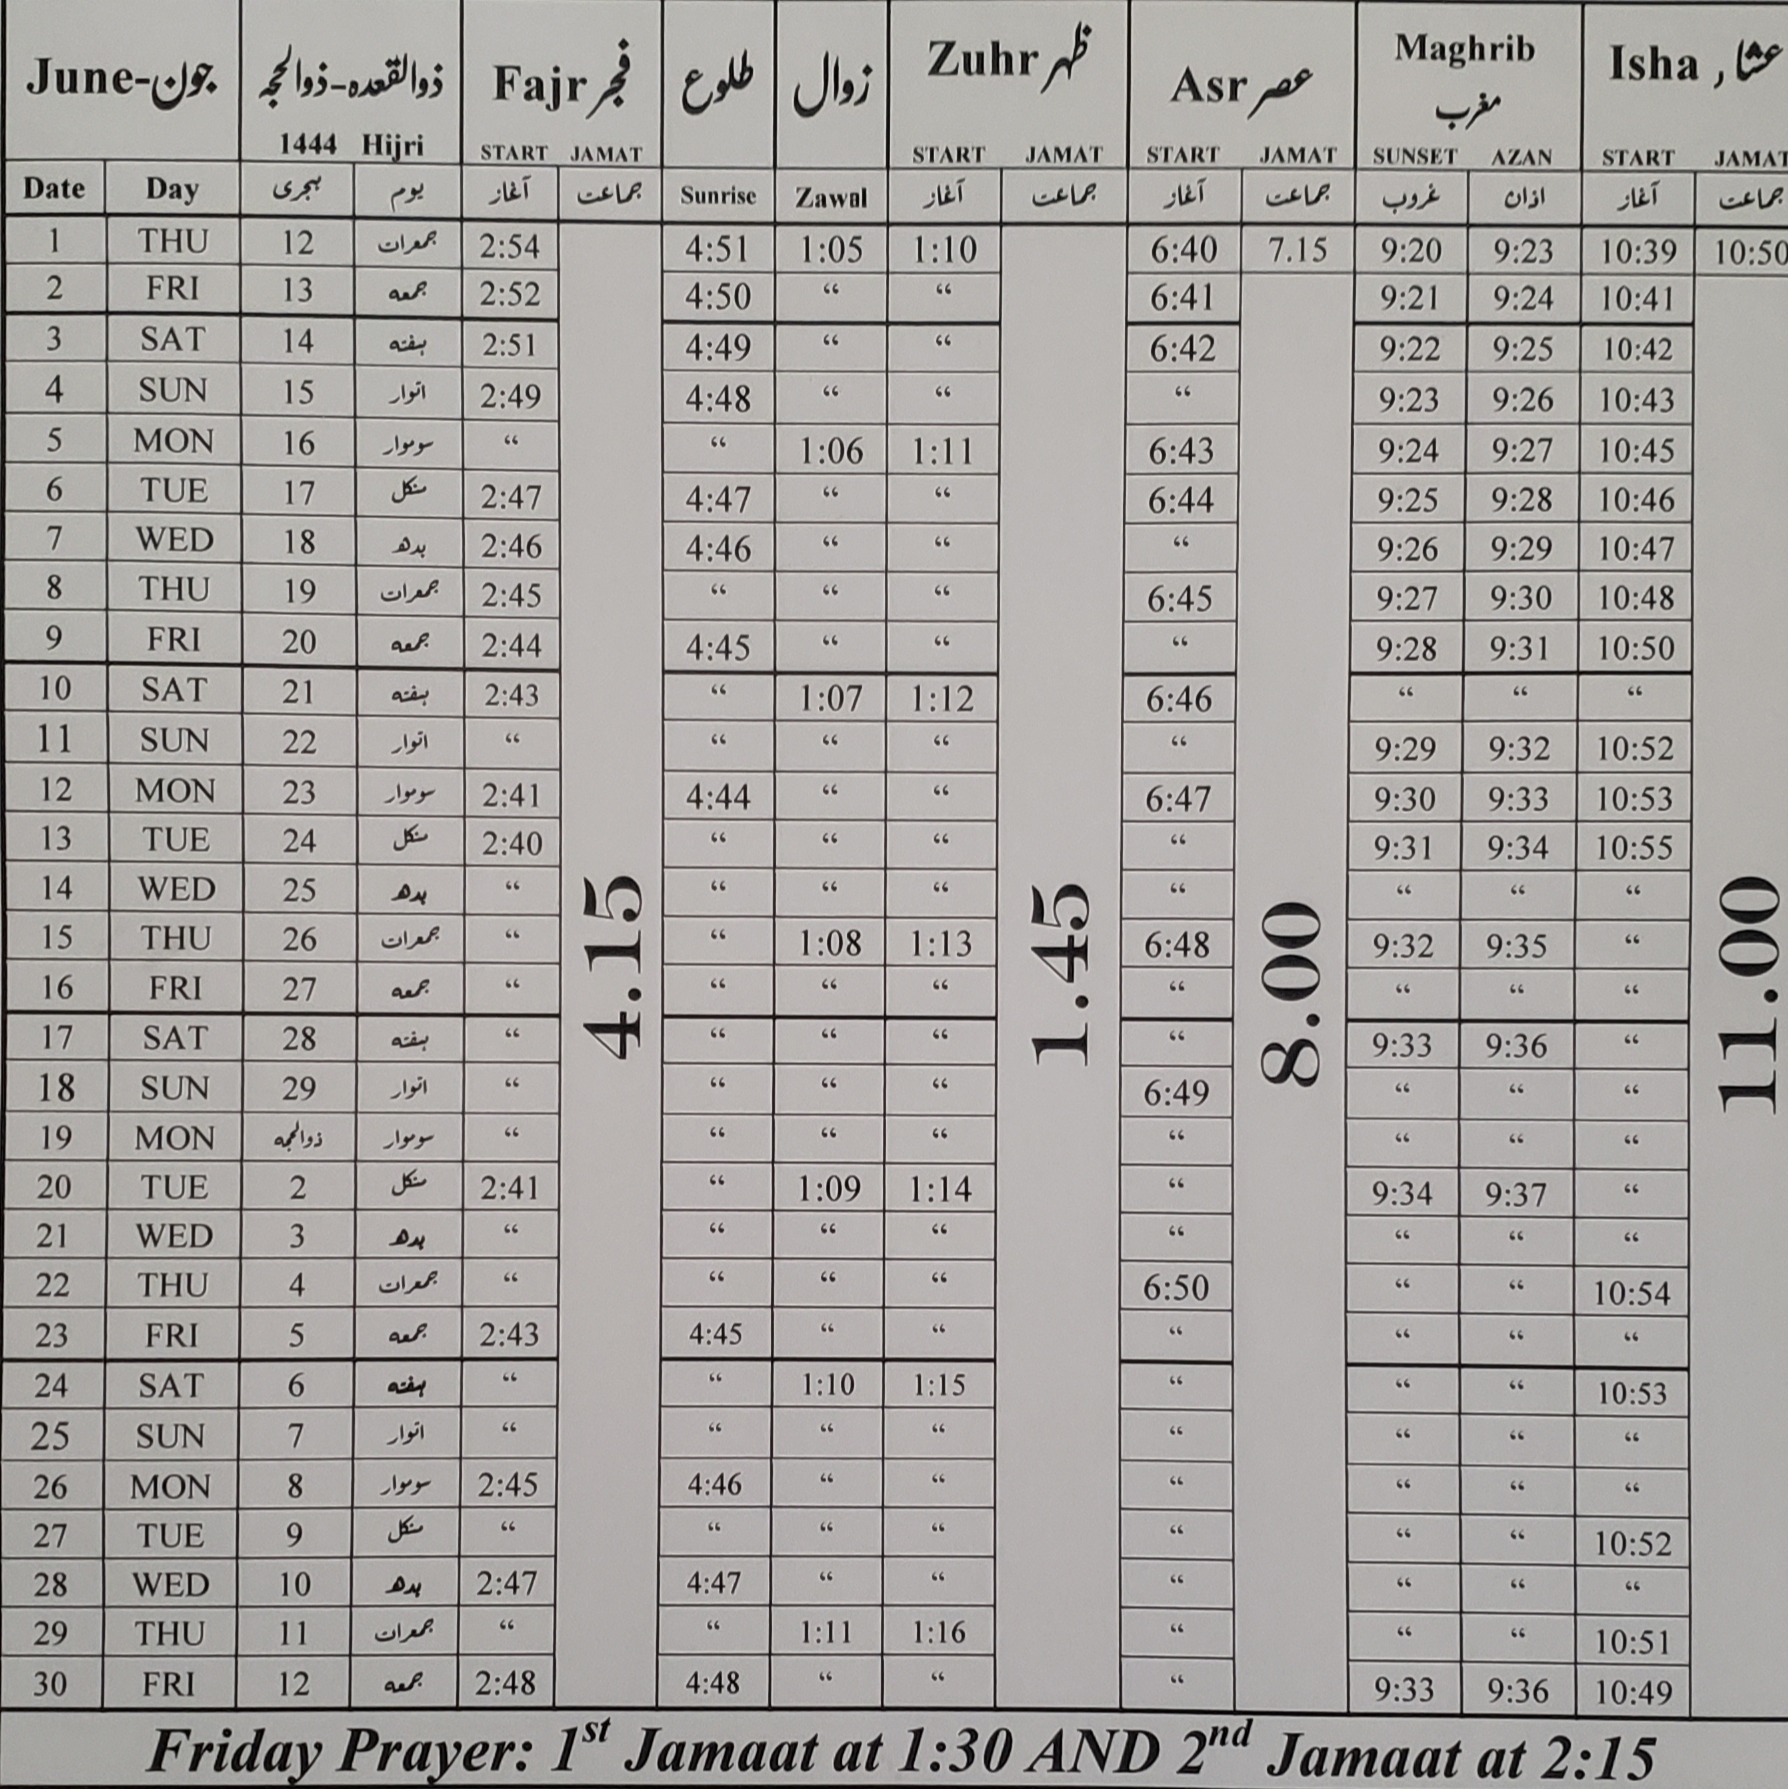 June-جون ذوالقعدہ-ذوالحجہ Fajr فجر طلوع زوال Zuhr ظہر Asr عصر Maghrib مغرب Isha عشاء
1444 Hijri START JAMAT START JAMAT START JAMAT SUNSET AZAN START JAMAT
Date Day ہجری یوم آغاز جماعت Sunrise Zawal آغاز جماعت آغاز جماعت غروب اذان آغاز جماعت
1 THU 12 جمعرات 2:54 4:51 1:05 1:10 6:40 7.15 9:20 9:23 10:39 10:50
2 FRI 13 جمعہ 2:52 4:50 “ “ 6:41 9:21 9:24 10:41
3 SAT 14 ہفتہ 2:51 4:49 “ “ 6:42 9:22 9:25 10:42
4 SUN 15 اتوار 2:49 4:48 “ “ “ 9:23 9:26 10:43
5 MON 16 سوموار “ “ 1:06 1:11 6:43 9:24 9:27 10:45
6 TUE 17 منگل 2:47 4:47 “ “ 6:44 9:25 9:28 10:46
7 WED 18 بدھ 2:46 4:46 “ “ “ 9:26 9:29 10:47
8 THU 19 جمعرات 2:45 “ “ “ 6:45 9:27 9:30 10:48
9 FRI 20 جمعہ 2:44 4:45 “ “ “ 9:28 9:31 10:50
10 SAT 21 ہفتہ 2:43 “ 1:07 1:12 6:46 “ “ “
11 SUN 22 اتوار “ “ “ “ “ 9:29 9:32 10:52
12 MON 23 سوموار 2:41 4:44 “ “ 6:47 9:30 9:33 10:53
13 TUE 24 منگل 2:40 “ “ “ “ 9:31 9:34 10:55
14 WED 25 بدھ “ “ “ “ “ “ “ “
15 THU 26 جمعرات “ 4.15 “ 1:08 1:13 1.45 6:48 8.00 9:32 9:35 “ 11.00
16 FRI 27 جمعہ “ “ “ “ “ “ “ “
17 SAT 28 ہفتہ “ “ “ “ “ 9:33 9:36 “
18 SUN 29 اتوار “ “ “ “ 6:49 “ “ “
19 MON ذوالحجہ سوموار “ “ “ “ “ “ “ “
20 TUE 2 منگل 2:41 “ 1:09 1:14 “ 9:34 9:37 “
21 WED 3 بدھ “ “ “ “ “ “ “ “
22 THU 4 جمعرات “ “ “ “ 6:50 “ “ 10:54
23 FRI 5 جمعہ 2:43 4:45 “ “ “ “ “ “
24 SAT 6 ہفتہ “ “ 1:10 1:15 “ “ “ 10:53
25 SUN 7 اتوار “ “ “ “ “ “ “ “
26 MON 8 سوموار 2:45 4:46 “ “ “ “ “ “
27 TUE 9 منگل “ “ “ “ “ “ “ 10:52
28 WED 10 بدھ 2:47 4:47 “ “ “ “ “ “
29 THU 11 جمعرات “ “ 1:11 1:16 “ “ “ 10:51
30 FRI 12 جمعہ 2:48 4:48 “ “ “ 9:33 9:36 10:49
Friday Prayer: 1st Jamaat at 1:30 AND 2nd Jamaat at 2:15